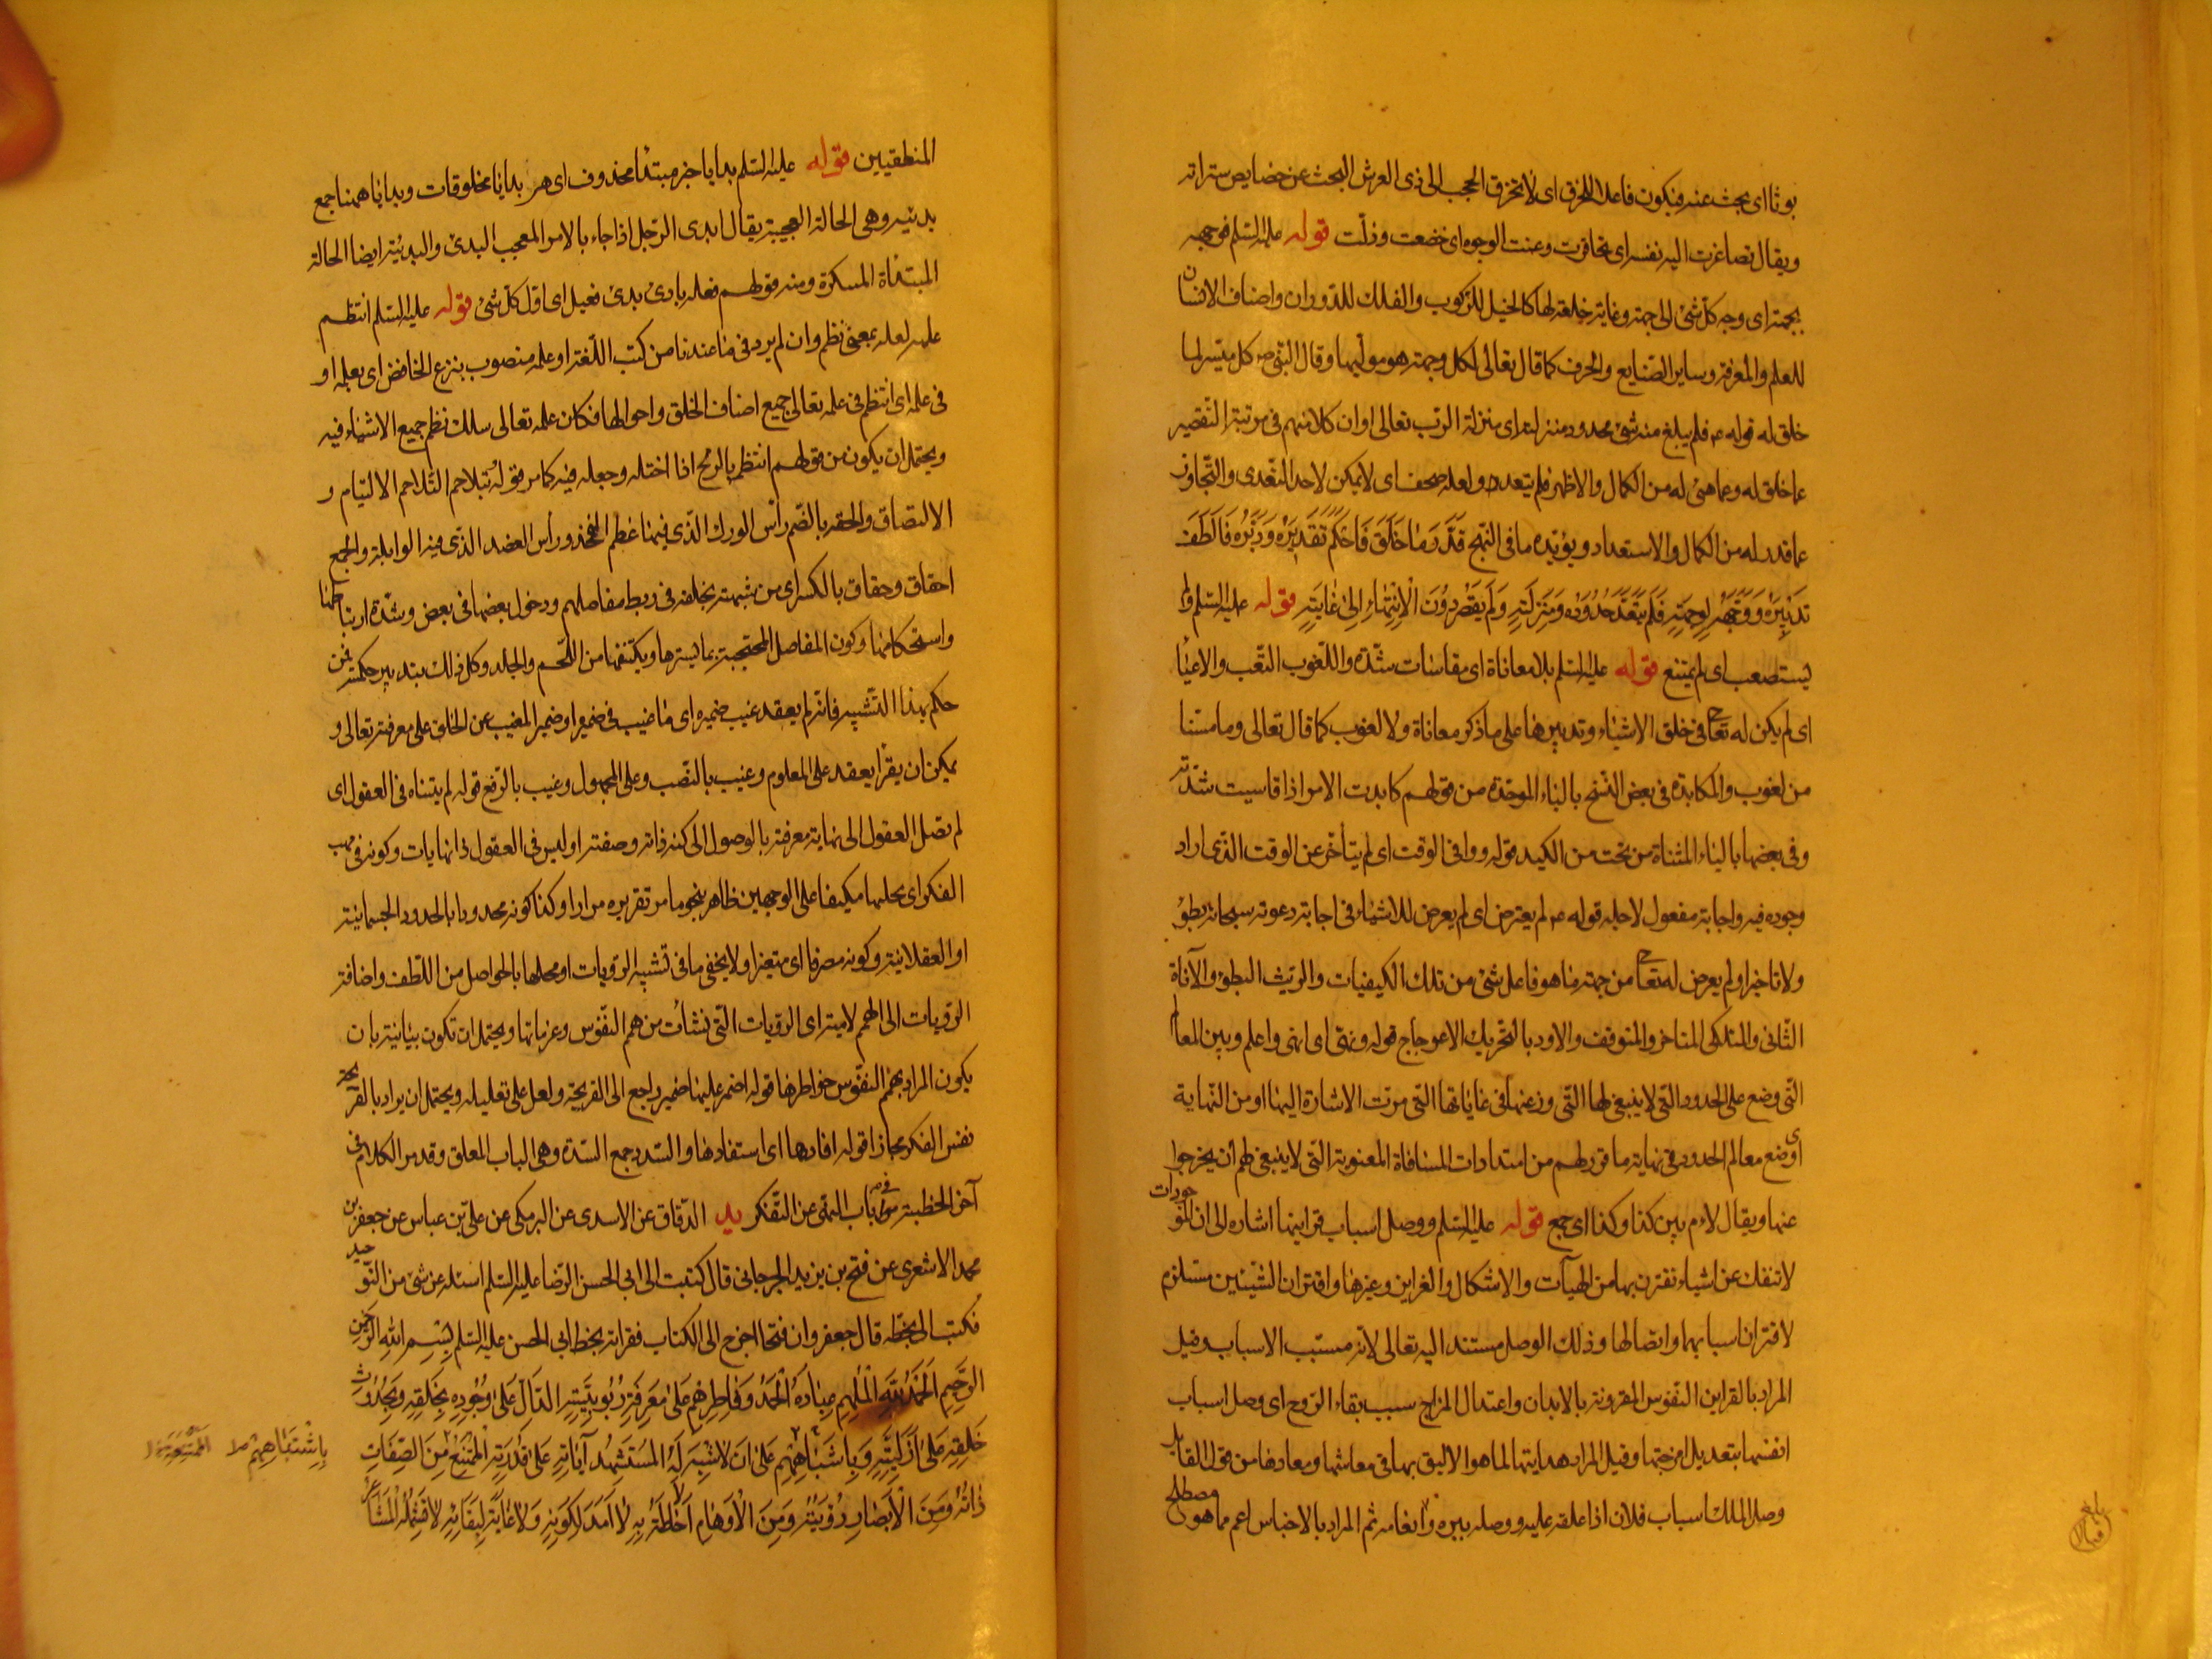 بوثا اى بحث عنه فيكون فاعلا للخرق اى لا تخرق الحجب الى ذى العرش البحث عن خصايص ستراته
ويقال تصاغرت اليه نفسه اى تحاقرت وعنت الوجوه اى خضعت وذلّت قوله عليه السّلم فوجهه
بجهته اى وجه كلّ شئ الى جهته وغاية خلقه لها كالخيل للرّكوب والفلك للدّوران واصناف الانسان
للعلم والمعرفة وساير الصّنايع والحرف كما قال تعالى لكل وجهة هو مولّيها وقال النّبىّ ص كل ميّسر لما
خلق له قوله ع فلم يبلغ منه شئ محدود منزلته اى منزلة الرّب تعالى او ان كلا منهم فى مرتبة التّقصير
عما خلق له وعما هيئ له من الكمال والاظهر فلم يتعدد ولعله صحف اى لا يمكن لاحد التّعدى والتّجاوز
عما قدر له من الكمال والاستعداد ويؤيّده ما فى النّهج قَدَّرَ مَا خَلَقَ فَاحْكَمَ تَقْدِيرَهُ وَدَبَّرَهُ فَالْطَفَ
تَدْبِيرَهُ وَوَجَّهَهُ لِوِجْهَتِهِ فَلَمْ يَتَعَدَّ حُدُودَ مَنْزِلَتِهِ وَلَمْ يَقْصُرْ دُونَ الْاِنْتِهَاءِ اِلىٰ غَايَتِهِ قوله عليه السّلم ولم
يستصعب اى لم يمتنع قوله عليه السّلم بلا معاناة اى مقاسات شدّة واللّغوب التّعب والاعياء
اى لم يكن له تعا فى خلق الاشياء وتدبيرها على ما ذكر معاناة ولا لغوب كما قال تعالى وما مسّنا
من لغوب والمكابدة فى بعض النّسخ بالباء الموحّدة من قولهم كابدت الامر اذا قاسيت شدّته
وفى بعضها بالياء المثناة من تحت من الكيد قوله ووافى الوقت اى لم يتأخّر عن الوقت الّذى اراد
وجوده فيه واجابة مفعول لاجله قوله ع لم يعترض اى لم يعرض للاشياء فى اجابة دعوته سبحانه بطوٴ
ولا تاخير او لم يعرض له تعا من جهة ما هو فاعل شئ من تلك الكيفيات والريث البطوٴ والاناة
الثّانى والمتلكّى المتاخر والمتوقف والاود بالتّحريك الاعوجاج قوله ونهى اى انهى واعلم وبين المعالم
الّتى وضع على الحدود التّى لا ينبغى لها التّى وزعها فى غاياتها التّى مرّت الاشارة اليها او من النّهاية
اى وضع معالم الحدود فى نهاية ما قدر لهم من امتدادات المسافاة المعنوية التّى لا ينبغى لهم ان يخرجوا
عنها ويقال لاءم بين كذا وكذا اى جمع قوله عليه السّلم ووصل اسباب قراينها اشاره الى ان الموجودات
لا تنفك عن اشياء تقترن بها من الهيآت والاشكال والغراين وغيرها واقتران الشّيئين مستلزم
لاقتران اسبابهما واتصالها وذلك الوصل مستند اليه تعالى لانّه مسبّب الاسباب وقيل
المراد بالقراين النّفوس المقرونة بالابدان واعتدال المزاج سبب بقاء الرّوح اى وصل اسباب
انفسها بتعديل امزجتها وقيل المراد هدايتها لما هو الاليق بها فى معاشها ومعادها من قول القايل
وصل الملك اسباب فلان اذا علقه عليه ووصله ببره وانعامه ثم المراد بالاجناس اعم مما هو مصطلح
المنطقيين قوله عليه السّلم بدايا خبر مبتدٴا محذوف اى هى بدايا مخلوقات وبدايا ههنا جمع
بديّه وهى الحالة العجيبة يقال ابدى الرّجل اذا جاء بالامر المعجب البدئ والبديّة ايضا الحالة
المبتداة المبتكرة ومنه قولهم فعله بادئ بدئ فعيل اى اوّل كلّ شئ قوله عليه السّلم انتظم
علمه لعله بمعنى نظم وان لم يرد فى ما عندنا من كتب اللّغة او علمه منصوب بنزع الخافض اى بعلمه او
فى علمه اى انتظم فى علمه تعالى جميع اصناف الخلق واحوالها فكان علمه تعالى سلك نظم جميع الاشياء فيه
ويحتمل ان يكون من قولهم انتظم بالرّمح اذا اختله وجعله فيه كما مر قوله بتلاحم التّلاحم الالتيام و
الالتصاق والحقه بالضّم رأس الورك الّذى فيها عظم الفخذ ورأس العضد الذّى فيه الوابلة والجمع
احقاق وحقاق بالكسر اى من شبهته بخلقه فى ربط مفاصلهم ودخول بعضها فى بعض وشدّة ارتباطها
واستحكامها وكون المفاصل المحتجبة بما يسترها ويكتنفها من اللّحم والجلد وكل ذلك بتدبير حكمته فمن
حكم بهذا التّشبيه فانّه لم يعقد غيب ضميره اى ما غيب فى ضميره او ضميره المغيب عن الخلق على معرفته تعالى و
يمكن ان يقرأ يعقد على المعلوم وغيب بالنّصب وعلى المجهول وغيب بالرّفع قوله لم يتناه فى العقول اى
لم تصل العقول الى نهاية معرفته بالوصول الى كنه ذاته وصفته او ليس فى العقول ذا نهايات وكونه فى مهب
الفكر اى محلها مكيفا على الوجهين ظاهر بنحو ما مر تقريره مرارا وكذا كونه محدودا بالحدود الجسمانية
او العقلانية وكونه مصرفا اى متغيرا ولا يخفى ما فى تشبيه الرويات او محلها بالحواصل من اللّطف واضافة
الرّويات الى الهمم لامية اى الرويات التّى نشأت من همم النّفوس وعزماتها ويحتمل ان تكون بيانية بان
يكون المراد بهمم النّفوس خواطرها قوله اضمر عليها ضمير راجع الى القريحة ولعل على تعليليه ويحتمل ان يراد بالقريحة
نفس الفكر مجازا قوله افادها اى استفادها والسّدد جمع السّدة وهى الباب المعلق وقد مر الكلام فى
آخر الخطبة فى باب النّهى عن التّفكر يد الدّقاق عن الاسدى عن البرمكى عن علىّ بن عباس عن جعفر بن
محمد الاشعرى عن فتح بن يزيد الجرجانى قال كتبت الى ابى الحسن الرّضا عليه السّلم اسئله عن شئ من التّوحيد
فكتب الى بخطّه قال جعفر وان فتحا اخرج الى الكتاب فقراته بخط ابى الحسن عليه السّلم بِسْمِ اللهِ الرَّحْمٰنِ
الرَّحِيمِ اَلْحَمْدُ لِلّٰهِ الْمُلْهِمِ عِبَادَهُ الْحَمْدَ وَفَاطِرِهِمْ عَلىٰ مَعْرِفَةِ رُبُوبِيَّتِهِ الدَّالِّ عَلىٰ وُجُودِهِ بِخَلْقِهِ وَبِحُدُوثِ
خَلْقِهِ عَلىٰ اَزَلِيَّتِهِ وَبِاشَبَاهِهِمْ عَلىٰ اَنْ لَا شِبْهَ لَهُ الْمُسْتَشْهِدِ آيَاتِهِ عَلىٰ قُدْرَتِهِ الْمُمْتَنِعِ مِنَ الصِّفَاتِ
بِاِشْتِبَاهِهِمْ
ذَاتُهُ وَمِنَ الْاَبْصَارِ رُؤْيَتُهُ وَمِنَ الْاَوْهَامِ اَحَاطَةُ بِهِ لَا اَمَدَ لِكَوْنِهِ وَلَا غَايَةَ لِبَقَائِهِ لَا تَشْمُلُهُ الْمَشَاعِرُ